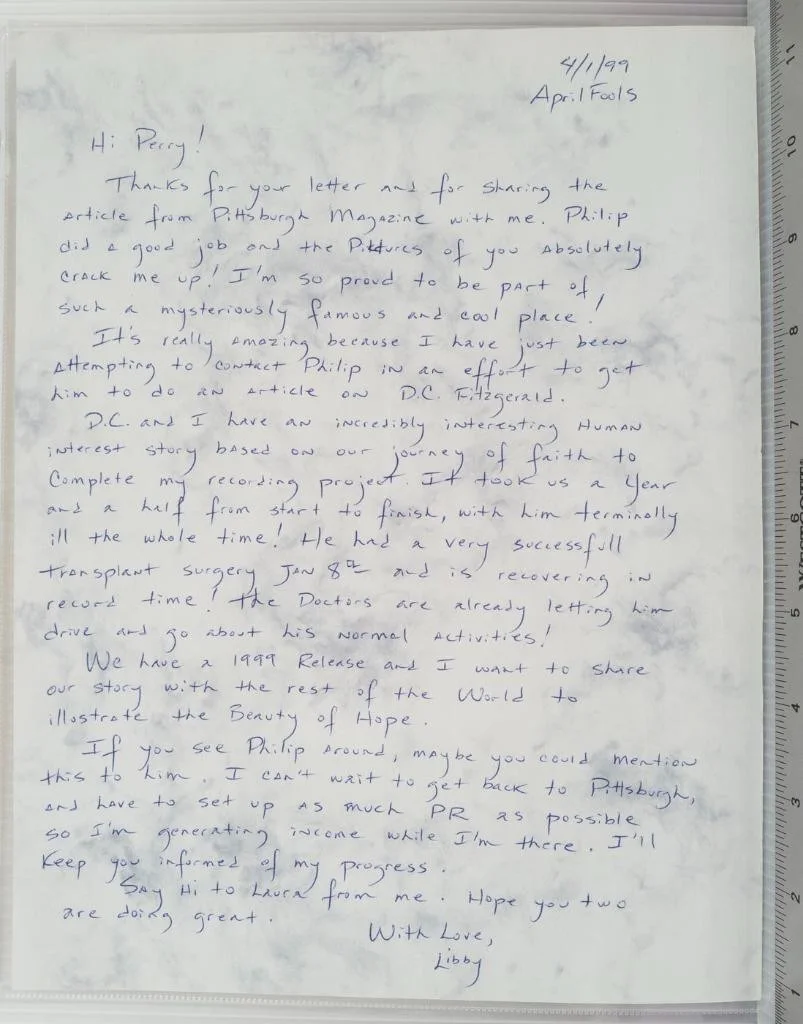 4/1/99
April Fools
Hi Perry!
Thanks for your letter and for sharing the
article from Pittsburgh Magazine with me. Philip
did a good job and the Pictures of you absolutely
crack me up! I'm so proud to be part of
such a mysteriously famous and cool place!
It's really amazing because I have just been
attempting to contact Philip in an effort to get
him to do an article on D.C. Fitzgerald.
D.C. and I have an incredibly interesting Human
interest story based on our journey of faith to
Complete my recording project. It took us a year
and a half from start to finish, with him terminally
ill the whole time! He had a very successfull
transplant surgery JAN 8th and is recovering in
record time! The Doctors are already letting him
drive and go about his normal activities!
We have a 1999 Release and I want to share
our story with the rest of the World to
illustrate the Beauty of Hope.
If you see Philip around, maybe you could mention
this to him. I can't wait to get back to Pittsburgh,
and have to set up as much PR as possible
so I'm generating income while I'm there. I'll
Keep you informed of my progress.
Say Hi to Laura from me. Hope you two
are doing great.
With Love,
Libby
11
10
9
8
7
6
5
4
3
2
1